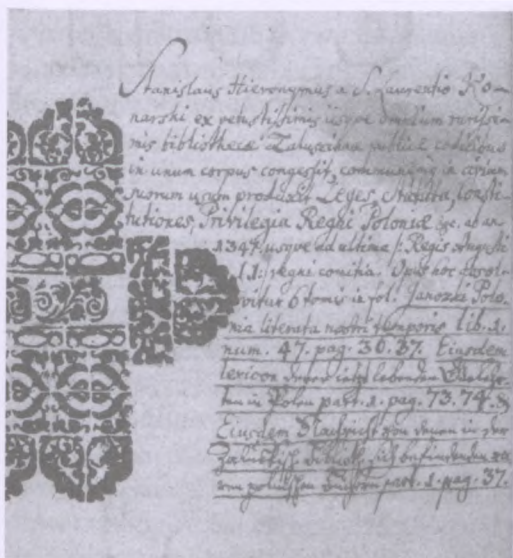 Stanislaus Hieronymus a S. Laurentio Ko-
narski ex vetustissimis usque omnium rarissi-
mis bibliothecæ Zaluscianæ publicæ codicibus
in unum corpus congessit, communem in civium
suorum usum produxit Leges, Statuta, Consti-
tutiones, Privilegia Regni Poloniæ &c. ab an.
1347. usque ad ultima /: Regis Augusti
:/ regni comitia. Opus hoc absol-
vitur 6 tomis in fol. Janozki Polo-
nia literata nostri temporis lib. 1.
num. 47. pag. 36. 37. Eiusdem
Lexicon derer itzt lebenden Gelehr-
ten in Polen part. 1. pag. 73. 74. &
Eiusdem Nachricht von denen in der
Zaluskisch. Biblioth. sich befindenden ra-
ren polnischen Büchern part. 1. pag. 37.